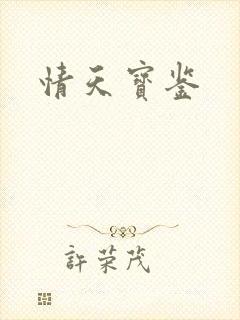 情天寶鉴
許荣茂